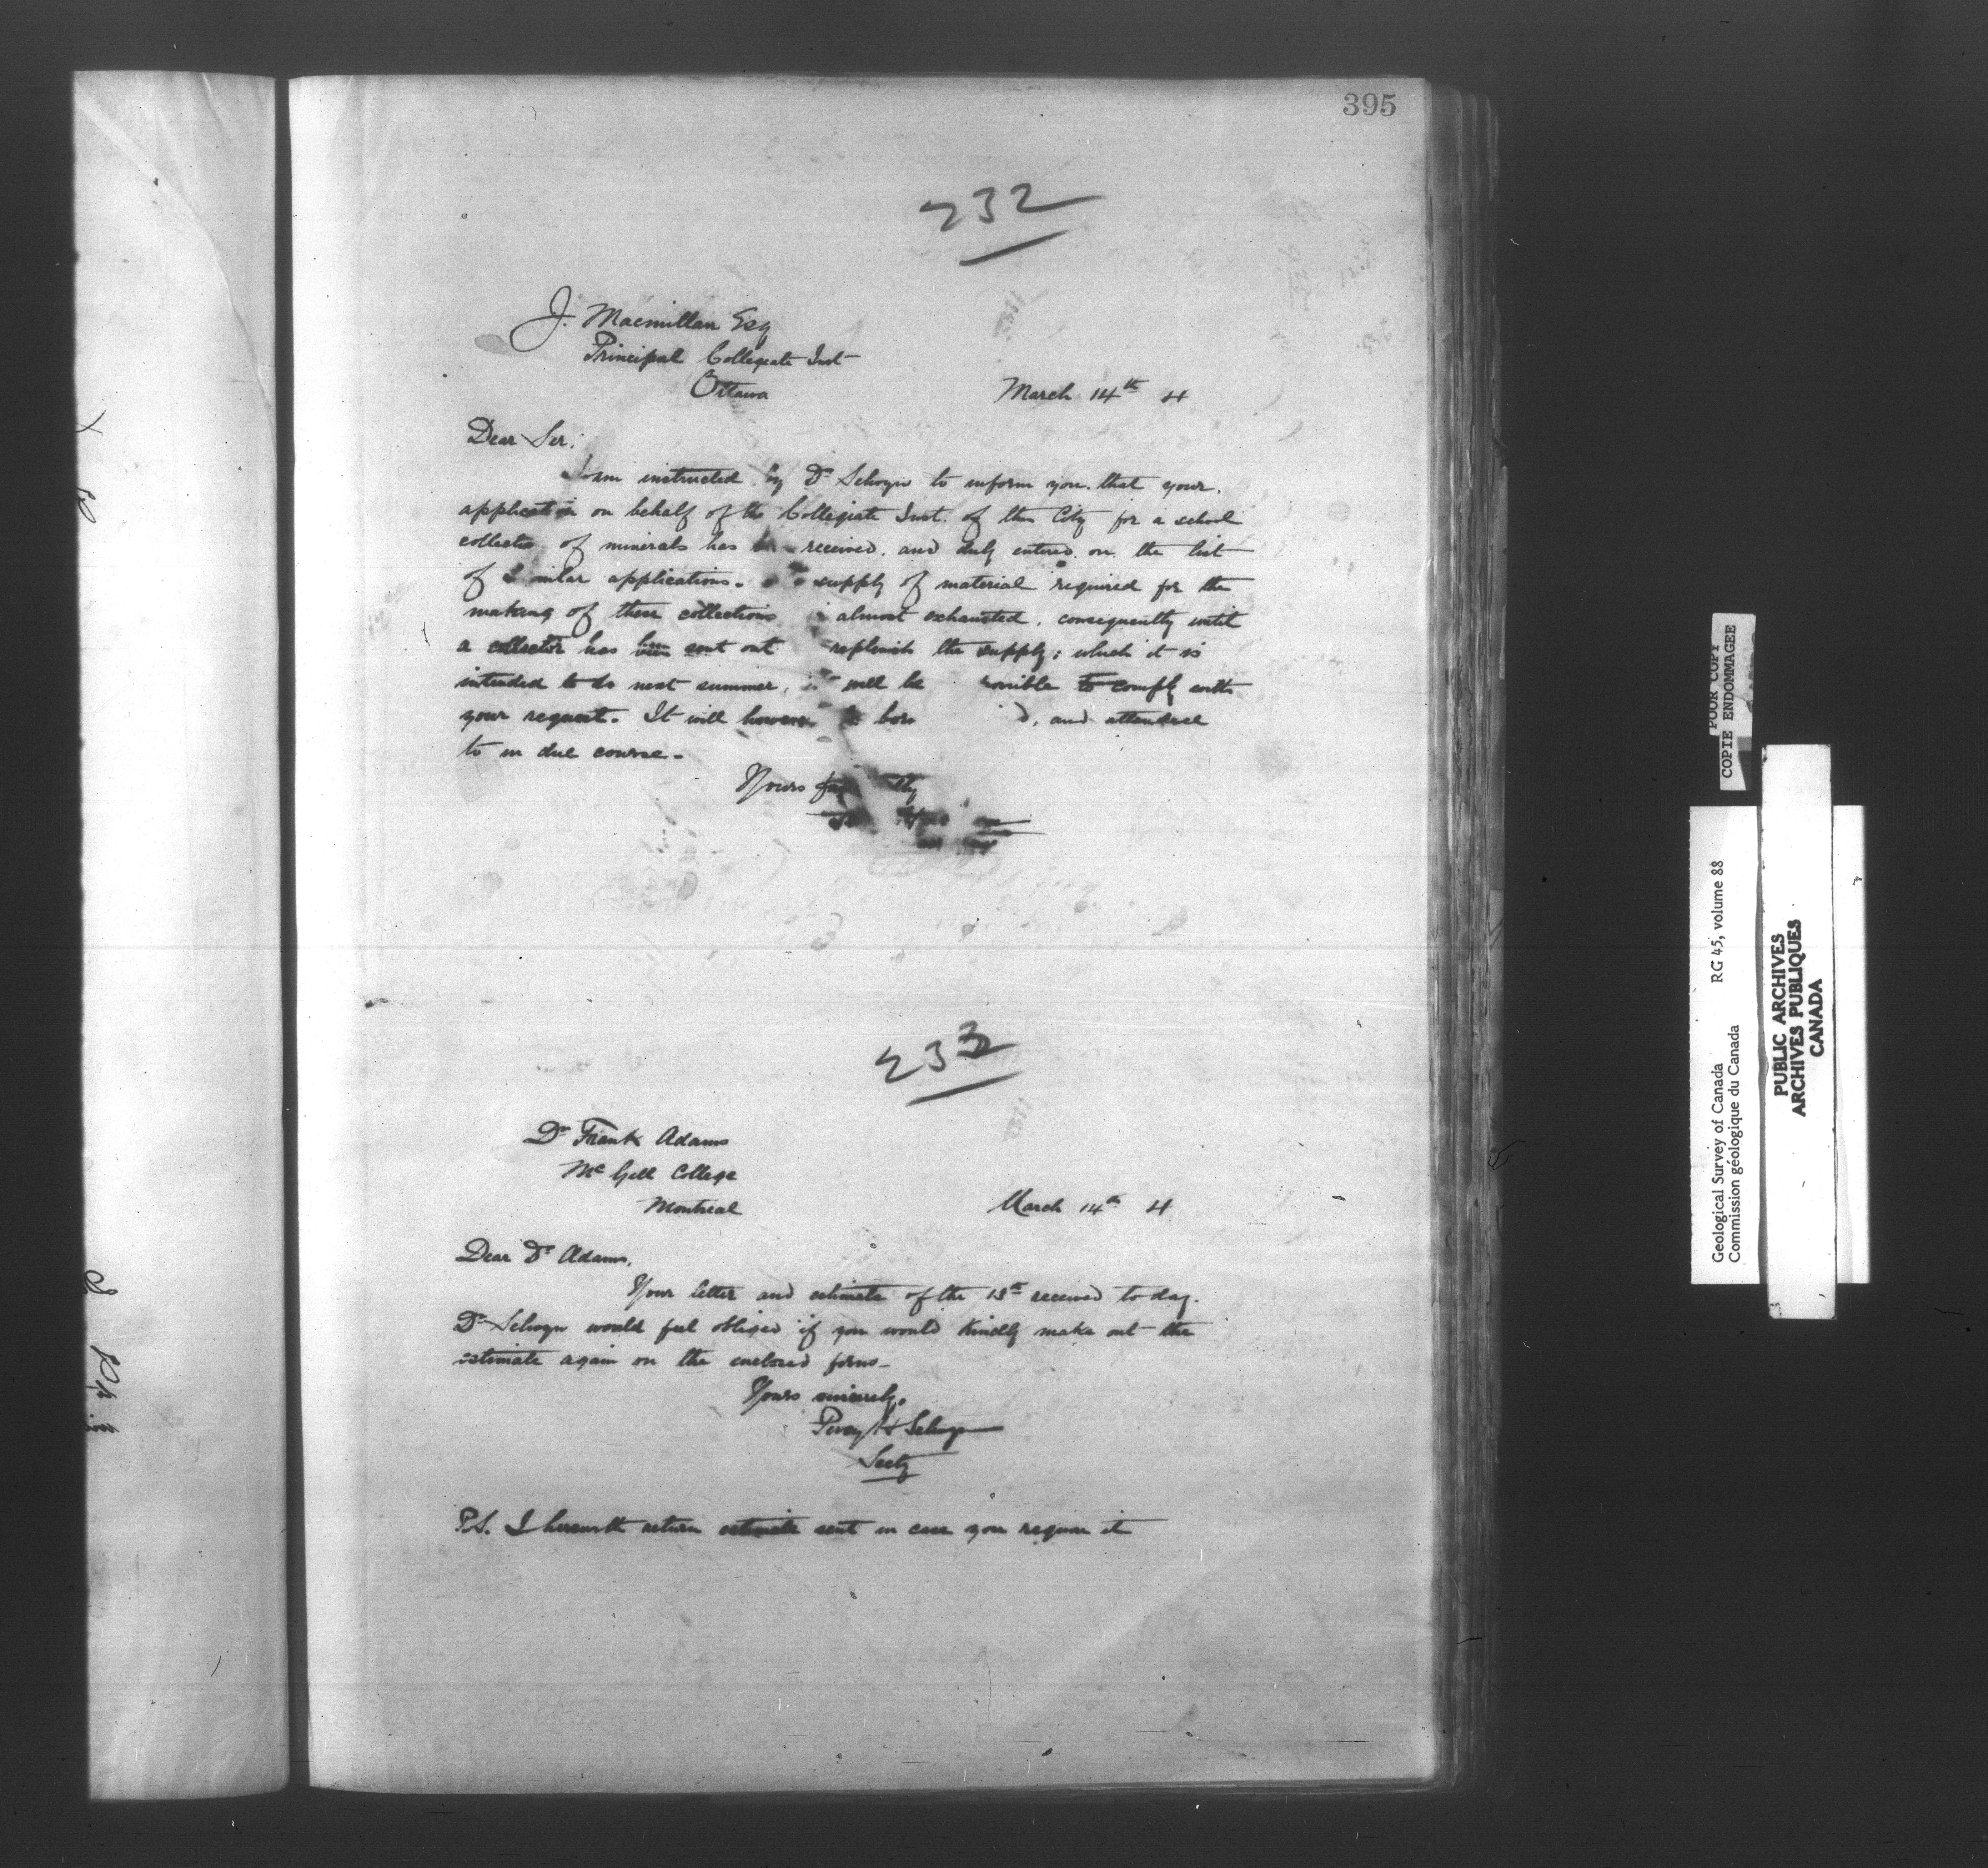 395
232
J. Macmillan Esq
Principal Collegiate Inst
Ottawa
March 14th 4
Dear Sir:
I am instructed by Dr Selwyn to inform you that your
application on behalf of the Collegiate Inst. of this City for a school
collection of minerals has received. and duly entered on the list
of similar applications. supply of material required for the
making of these collections almost exhausted, consequently until
a collector has been sent out replenish the supply; which it is
intended to do next summer, it will be to comply with
your request. It will however be and attended
to in due course.
Yours
233
Dr Frank Adams
McGill College
Montreal
March 14th 4
Dear Dr Adams,
Your letter and estimate of the 13th received to day.
Dr Selwyn would feel obliged if you would kindly make out the
estimate again on the enclosed forms
Yours sincerely,
Percy H Selwyn
Secty
P.S. I herewith return estimate sent in case you require it
POOR COPY
COPIE ENDOMMAGEE
Geological Survey of Canada RG 45, volume 88
Commission géologique du Canada
PUBLIC ARCHIVES
ARCHIVES PUBLIQUES
CANADA